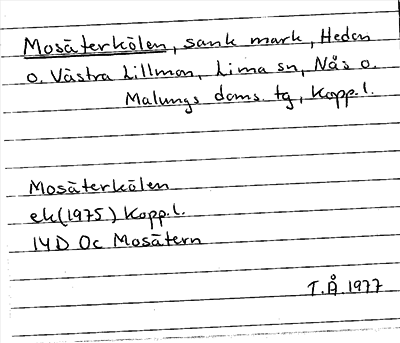 Mosäterkölen, sank mark, Hedon
o. Västra Lillmon, Lima sn, Nås o.
Malungs doms. tg, Kopp.l.
Mosäterkölen
ek(1975) Kopp.l.
14D Oc Mosätern
T.Å.1977